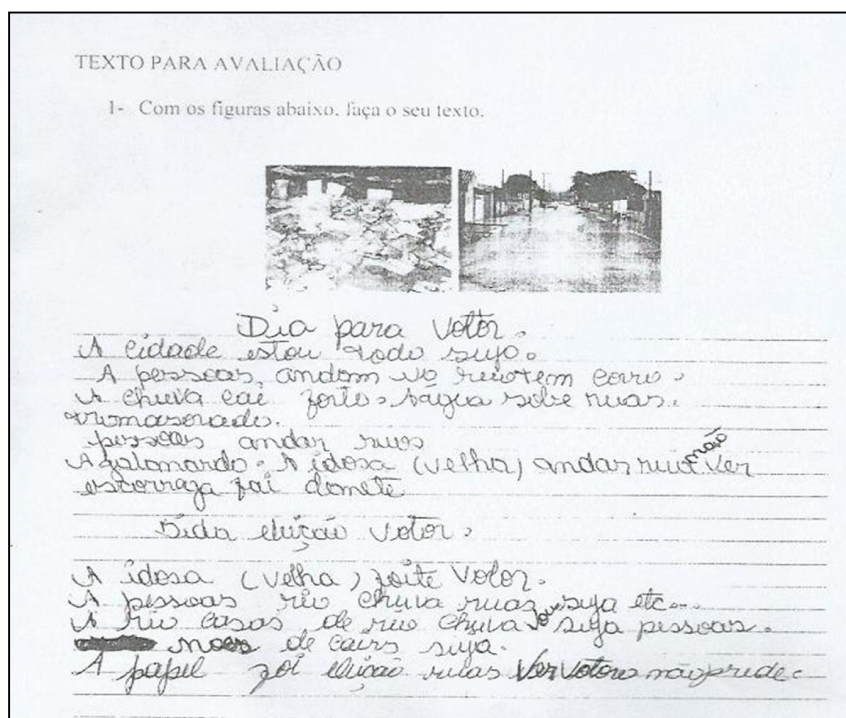 TEXTO PARA AVALIAÇÃO
1- Com os figuras abaixo, faça o seu texto.
Dia para votor.
A cidade estou todo sujo.
A pessoas, andom
A chuva cai forte. água sobe ruas.
pessoas andar ruas
A idosa (velha) andar rua não ver
eluição votor.
A idosa (velha) foite votor.
A pessoas rio chuva ruas suja etc...
A rio casas de rio chuva suja pessoas.
de cairs suja.
A papel foi eluição ruas ver votou não pride.